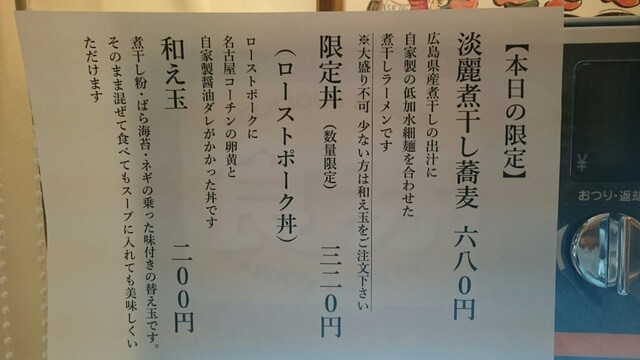 【本日の限定】
淡麗煮干し蕎麦 六八0円
広島県産煮干しの出汁に
自家製の低加水細麺を合わせた
煮干しラーメンです
※大盛り不可 少ない方は和え玉をご注文下さい
限定丼（数量限定） 三二0円
（ローストポーク丼）
ローストポークに
名古屋コーチンの卵黄と
自家製醤油ダレがかかった丼です
和え玉 二00円
煮干し粉・ばら海苔・ネギの乗った味付きの替え玉です。
そのまま混ぜて食べてもスープに入れても美味しくい
ただけます
¥
おつり・返却